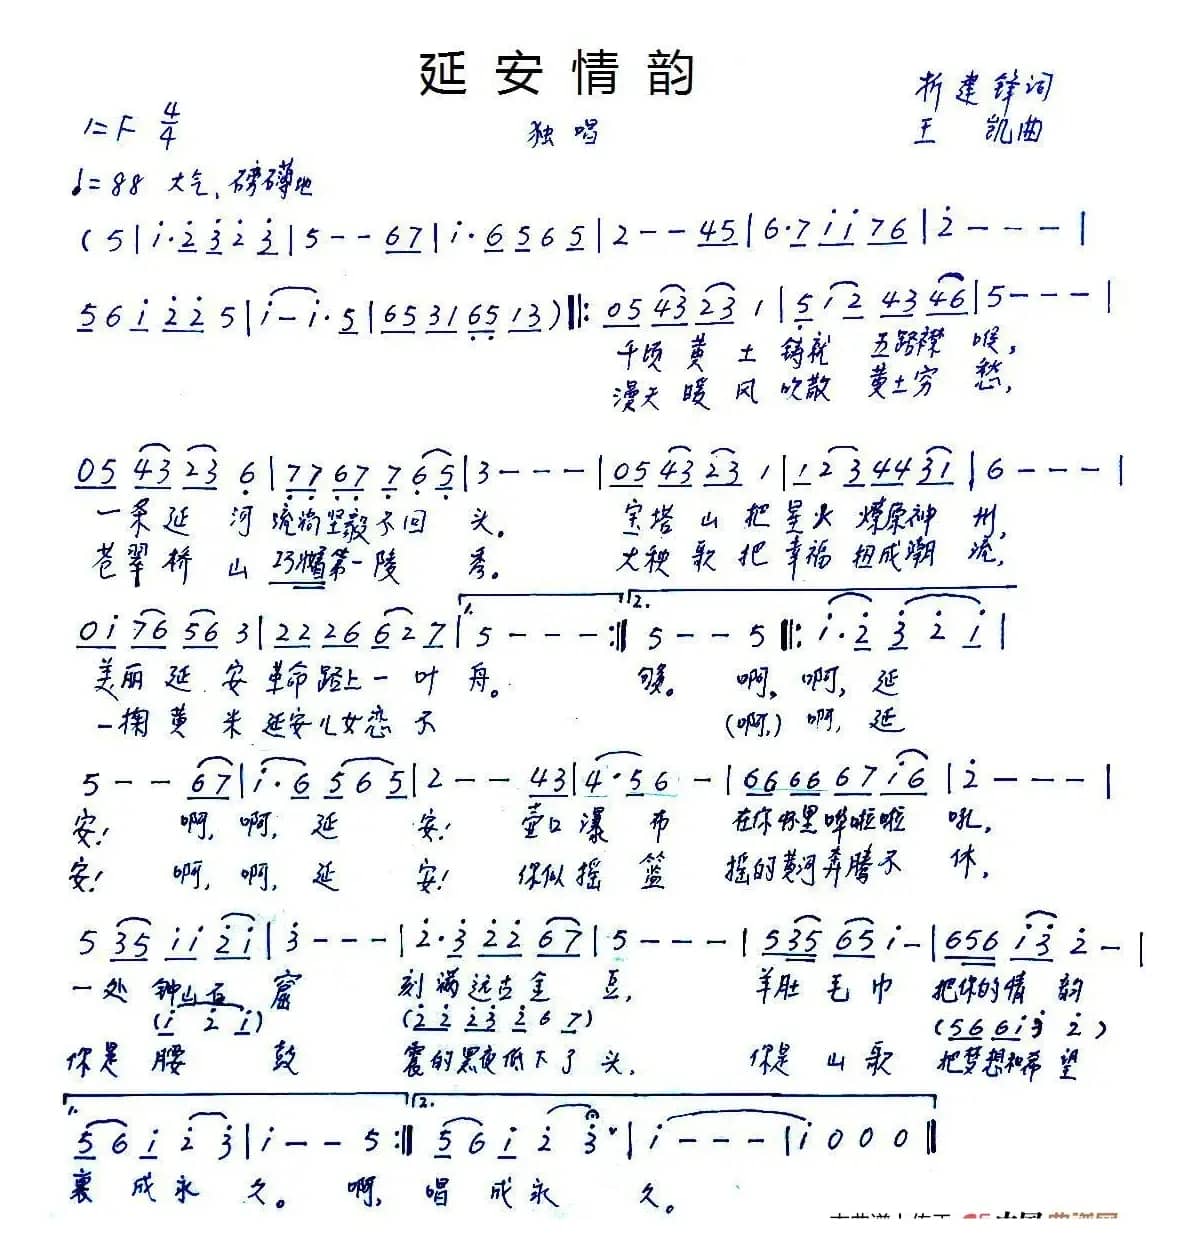 延安情韵
析建锋词
1=F 4/4 独唱 王凯曲
♩=88 大气、磅礴地
(5|i·2̇3̇2̇3̇|5--67|i·6565|2--45|6·7ii76|2̇---|
56i2̇2̇5|i-i·5|65316513)‖:054323 1|5i2 4346|5---|
千顷黄土铸就五路襟喉,
漫天暖风吹散黄土穷愁,
054323 6|7767 765|3---|054323 1|123 4431|6---|
一条延河流淌坚毅不回头。宝塔山把星火燎原神州,
苍翠桥山巧幄第一陵秀。大秧歌把幸福扭成潮流,
1. 2.
0i7656 3|2226 627|5---:‖5--5‖:i·2̇3̇2̇i|
美丽延安革命路上一叶舟。够。啊,啊,延
一掬黄米延安儿女恋不(啊,)啊,延
5--67|i·6565|2--43|4·56-|666667i6|2̇---|
安!啊,啊,延安!壶口瀑布在你怀里哗啦啦吼。
安!啊,啊,延安!你似摇篮摇的黄河奔腾不休。
535ii2̇i|3̇---|2̇·3̇2̇2̇67|5---|53565i-|656i3̇2̇-|
一处钟山石窟刻满远古金豆,羊肚毛巾把你的情韵
(i2̇i) (2̇2̇2̇3̇2̇67) (566i3̇2̇)
你是腰鼓震的黑夜低下了头,你是山歌把梦想和希望
1. 2.
56i2̇3̇|i--5:‖56i2̇3̇|i---|i000‖
裹成永久。啊,唱成永久。